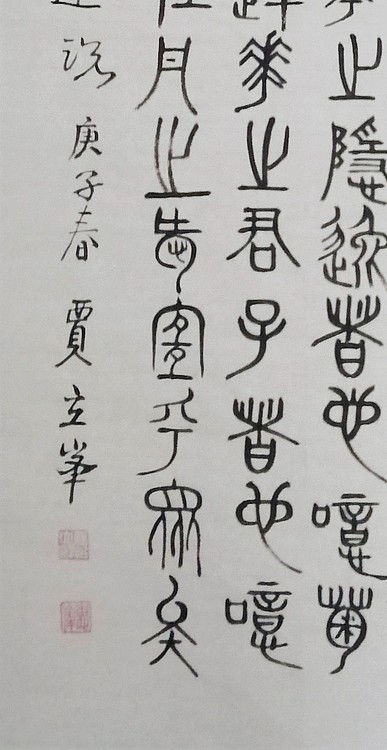 之隱逸者也噫菊
華之君子者也噫
丹之愛宜乎眾矣
說 庚子春 賈立峯